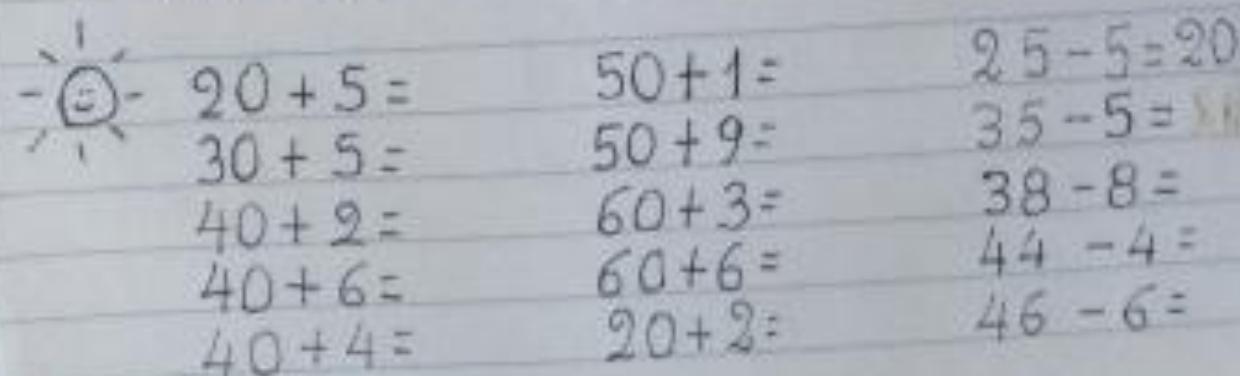 20 + 5 =
30 + 5 =
40 + 2 =
40 + 6 =
40 + 4 =
50 + 1 =
50 + 9 =
60 + 3 =
60 + 6 =
20 + 2 =
25 - 5 = 20
35 - 5 =
38 - 8 =
44 - 4 =
46 - 6 =